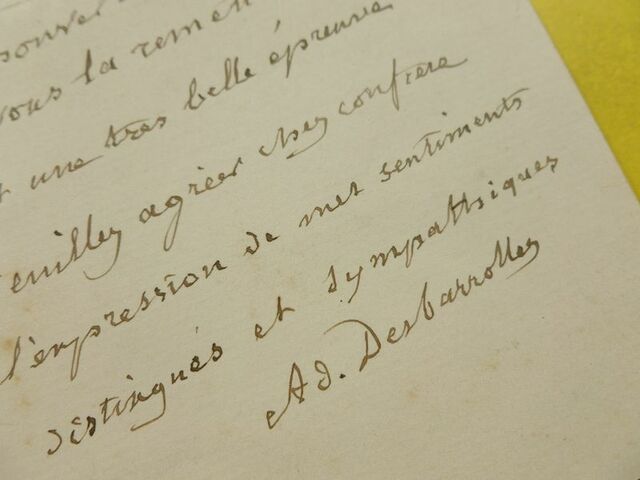 vous la remett
une tres belle épreuve
euillez agréer cher confrere
l'expression de mes sentiments
distingués et sympathiques
Ad. Desbarrolles